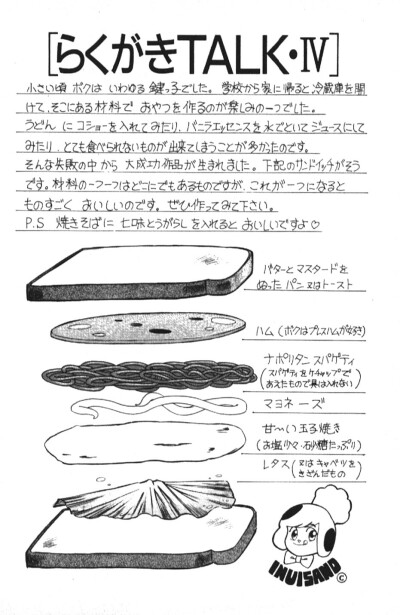 [らくがきTALK・Ⅳ]
小さい頃 ボクは いわゆる 鍵っ子でした。 学校から家に帰ると冷蔵庫を開
けて、そこにある材料で おやつを作るのが楽しみの一つでした。
うどん に コショーを入れてみたり、バニラエッセンスを水でといてジュースにして
みたり、とても食べられないものが出来てしまうことが多かったのです。
そんな失敗の中から 大成功作品が生まれました。下記のサンドイッチがそう
です。材料の一つ一つはどこにでもあるものですが、これが一つになると
ものすごく おいしいのです。ぜひ作ってみて下さい。
P.S 焼きそばに 七味とうがらしを入れると おいしいですよ♡
バターとマスタードを
ぬった パン 又はトースト
ハム (ボクはプレスハムが好き)
ナポリタン スパゲティ
(スパゲティをケチャップで
あえたもので具は入れない)
マヨネーズ
甘〜い 玉子焼き
(お塩少々・お砂糖たっぷり)
レタス (又はキャベツを
きざんだもの)
INUISAND
©